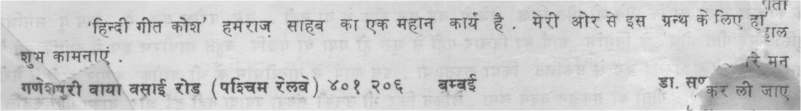 'हिन्दी गीत कोश' हमराज़ साहब का एक महान कार्य है . मेरी ओर से इस ग्रन्थ के लिए
शुभ कामनाएं .
रे मन
गणेशपुरी वाया वसाई रोड (पश्चिम रेलवे) ४०१ २०६ बम्बई डा.
कर ली जाए